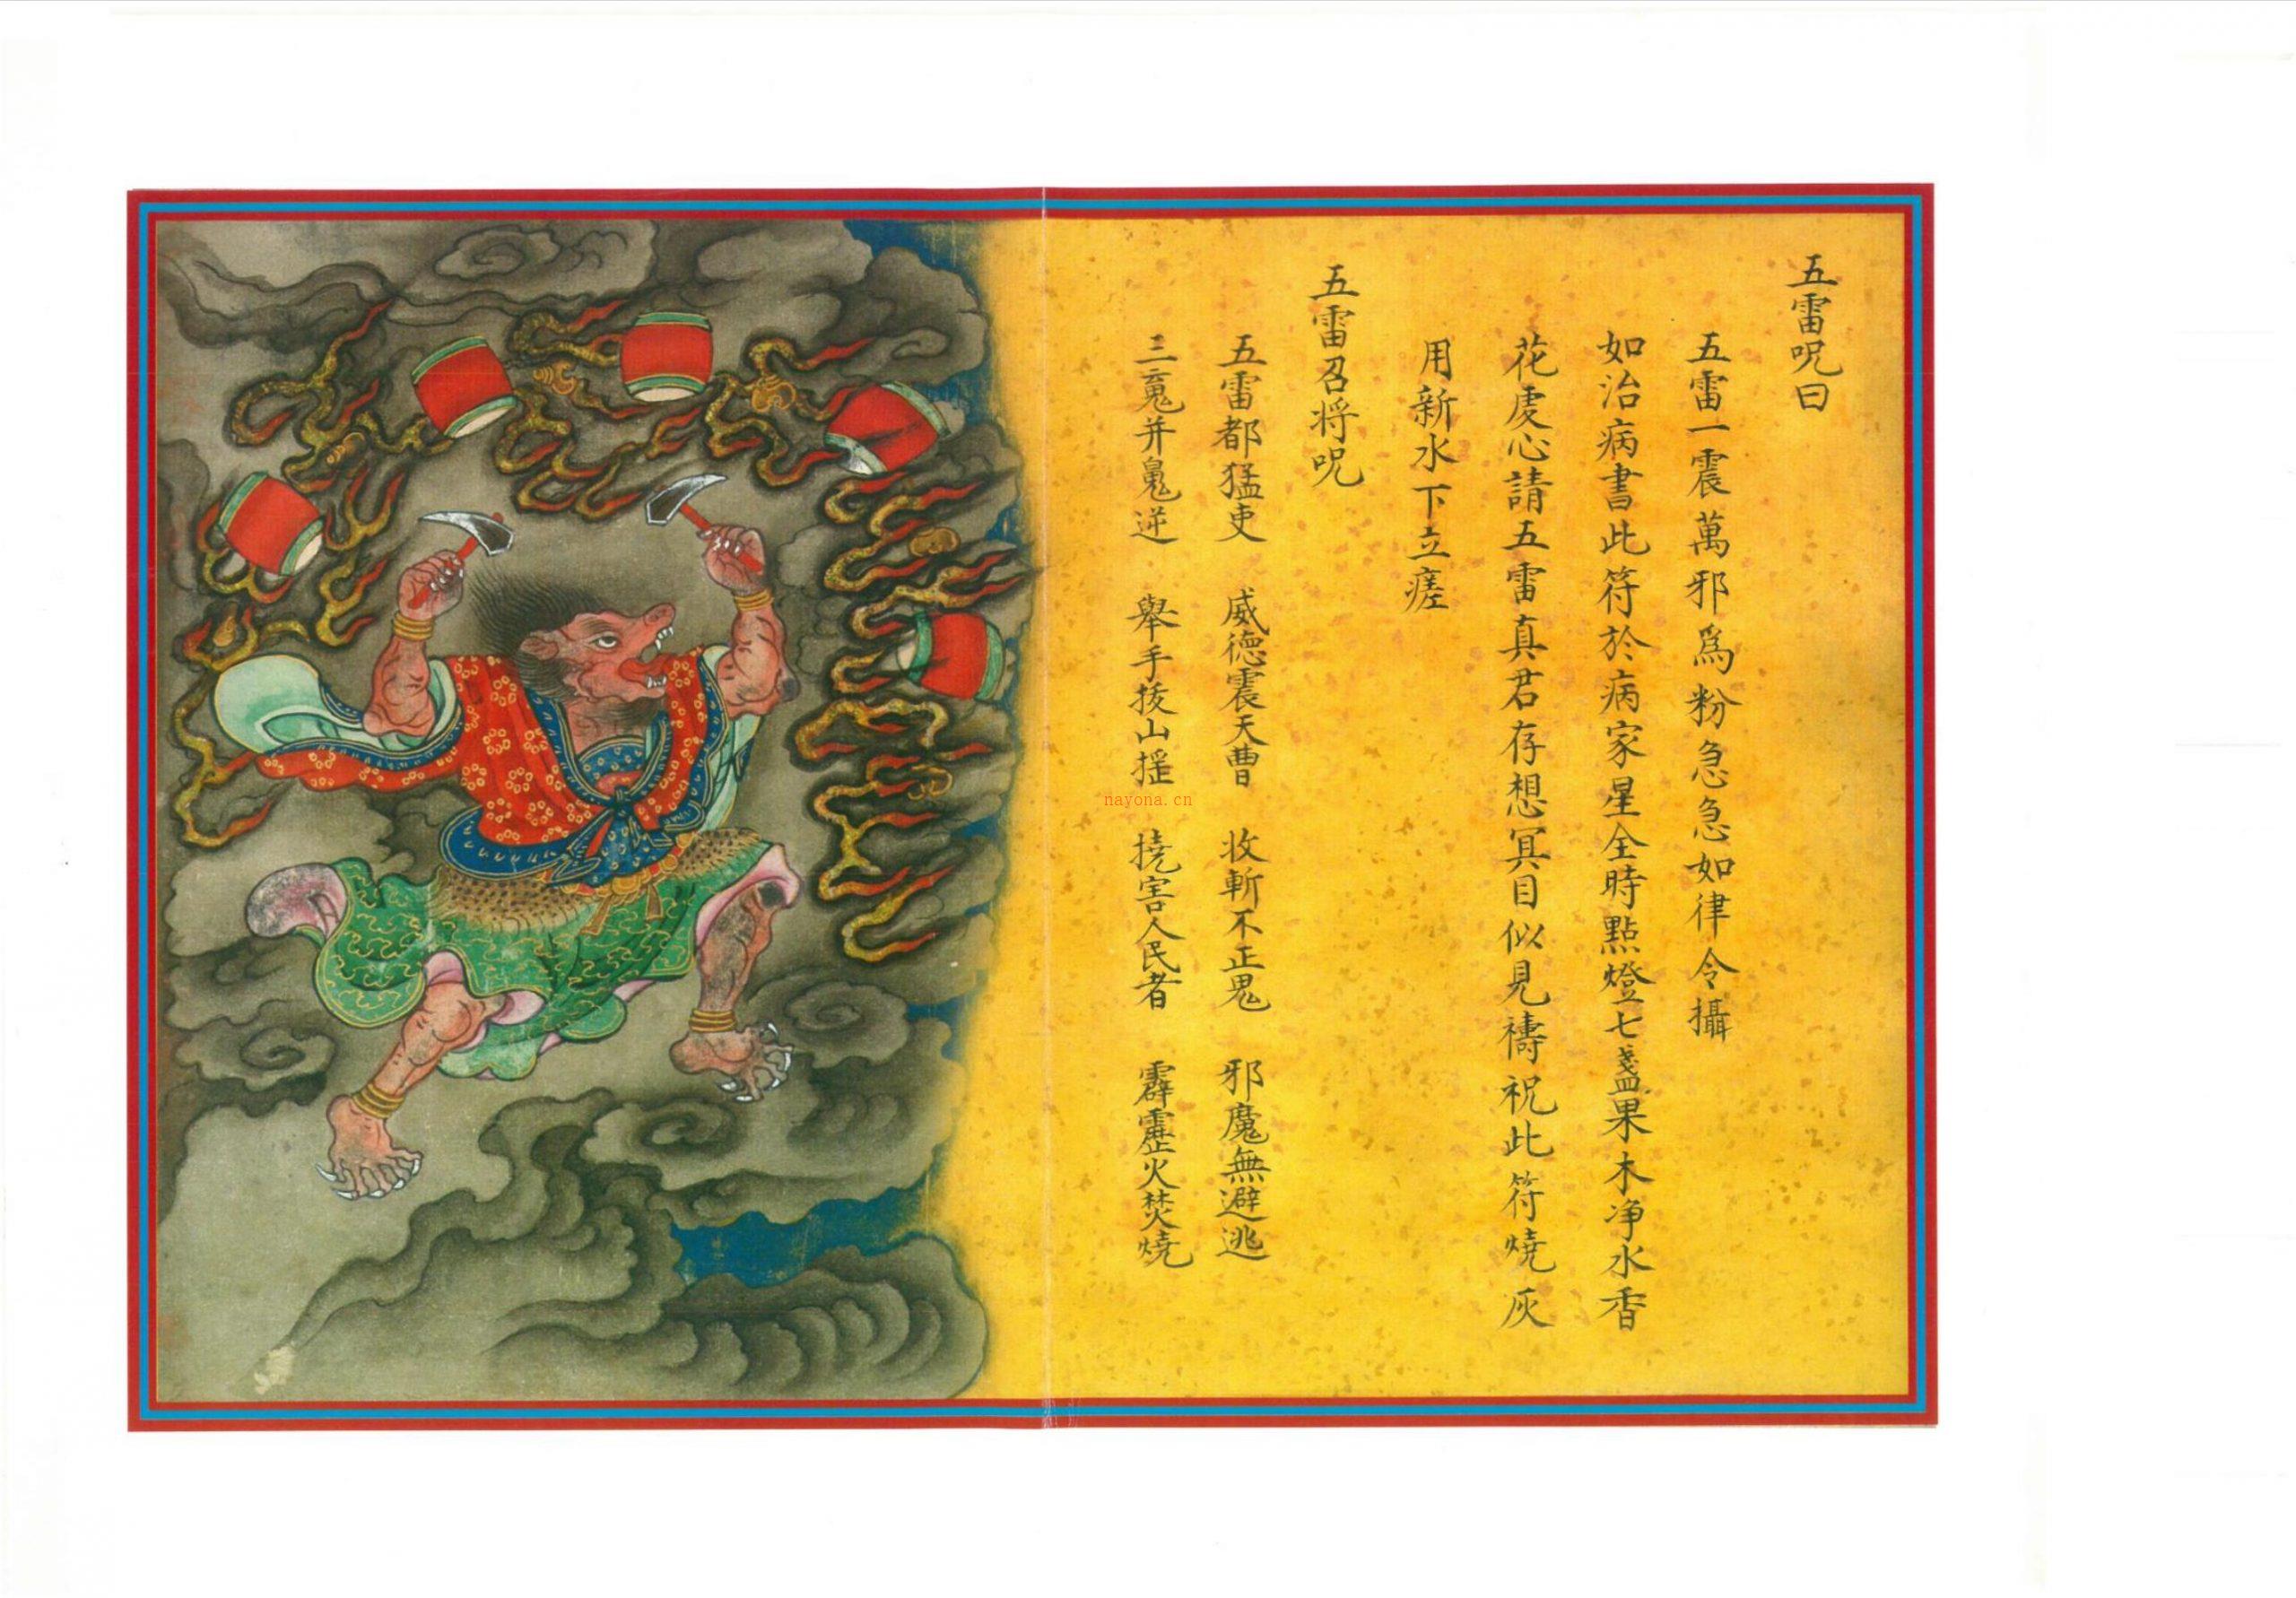 五雷呪曰
五雷一震萬邪爲粉急急如律令攝
如治病書此符於病家星全時點燈七盞果木净水香
花虔心請五雷真君存想冥目似見禱祝此符燒灰
用新水下立瘥
五雷召将呪
五雷都猛吏 威德震天曹 收斬不正鬼 邪魔無避逃
三鬼并鬼逆 舉手拔山摇 撓害人民者 霹靂火焚燒
nayona.cn